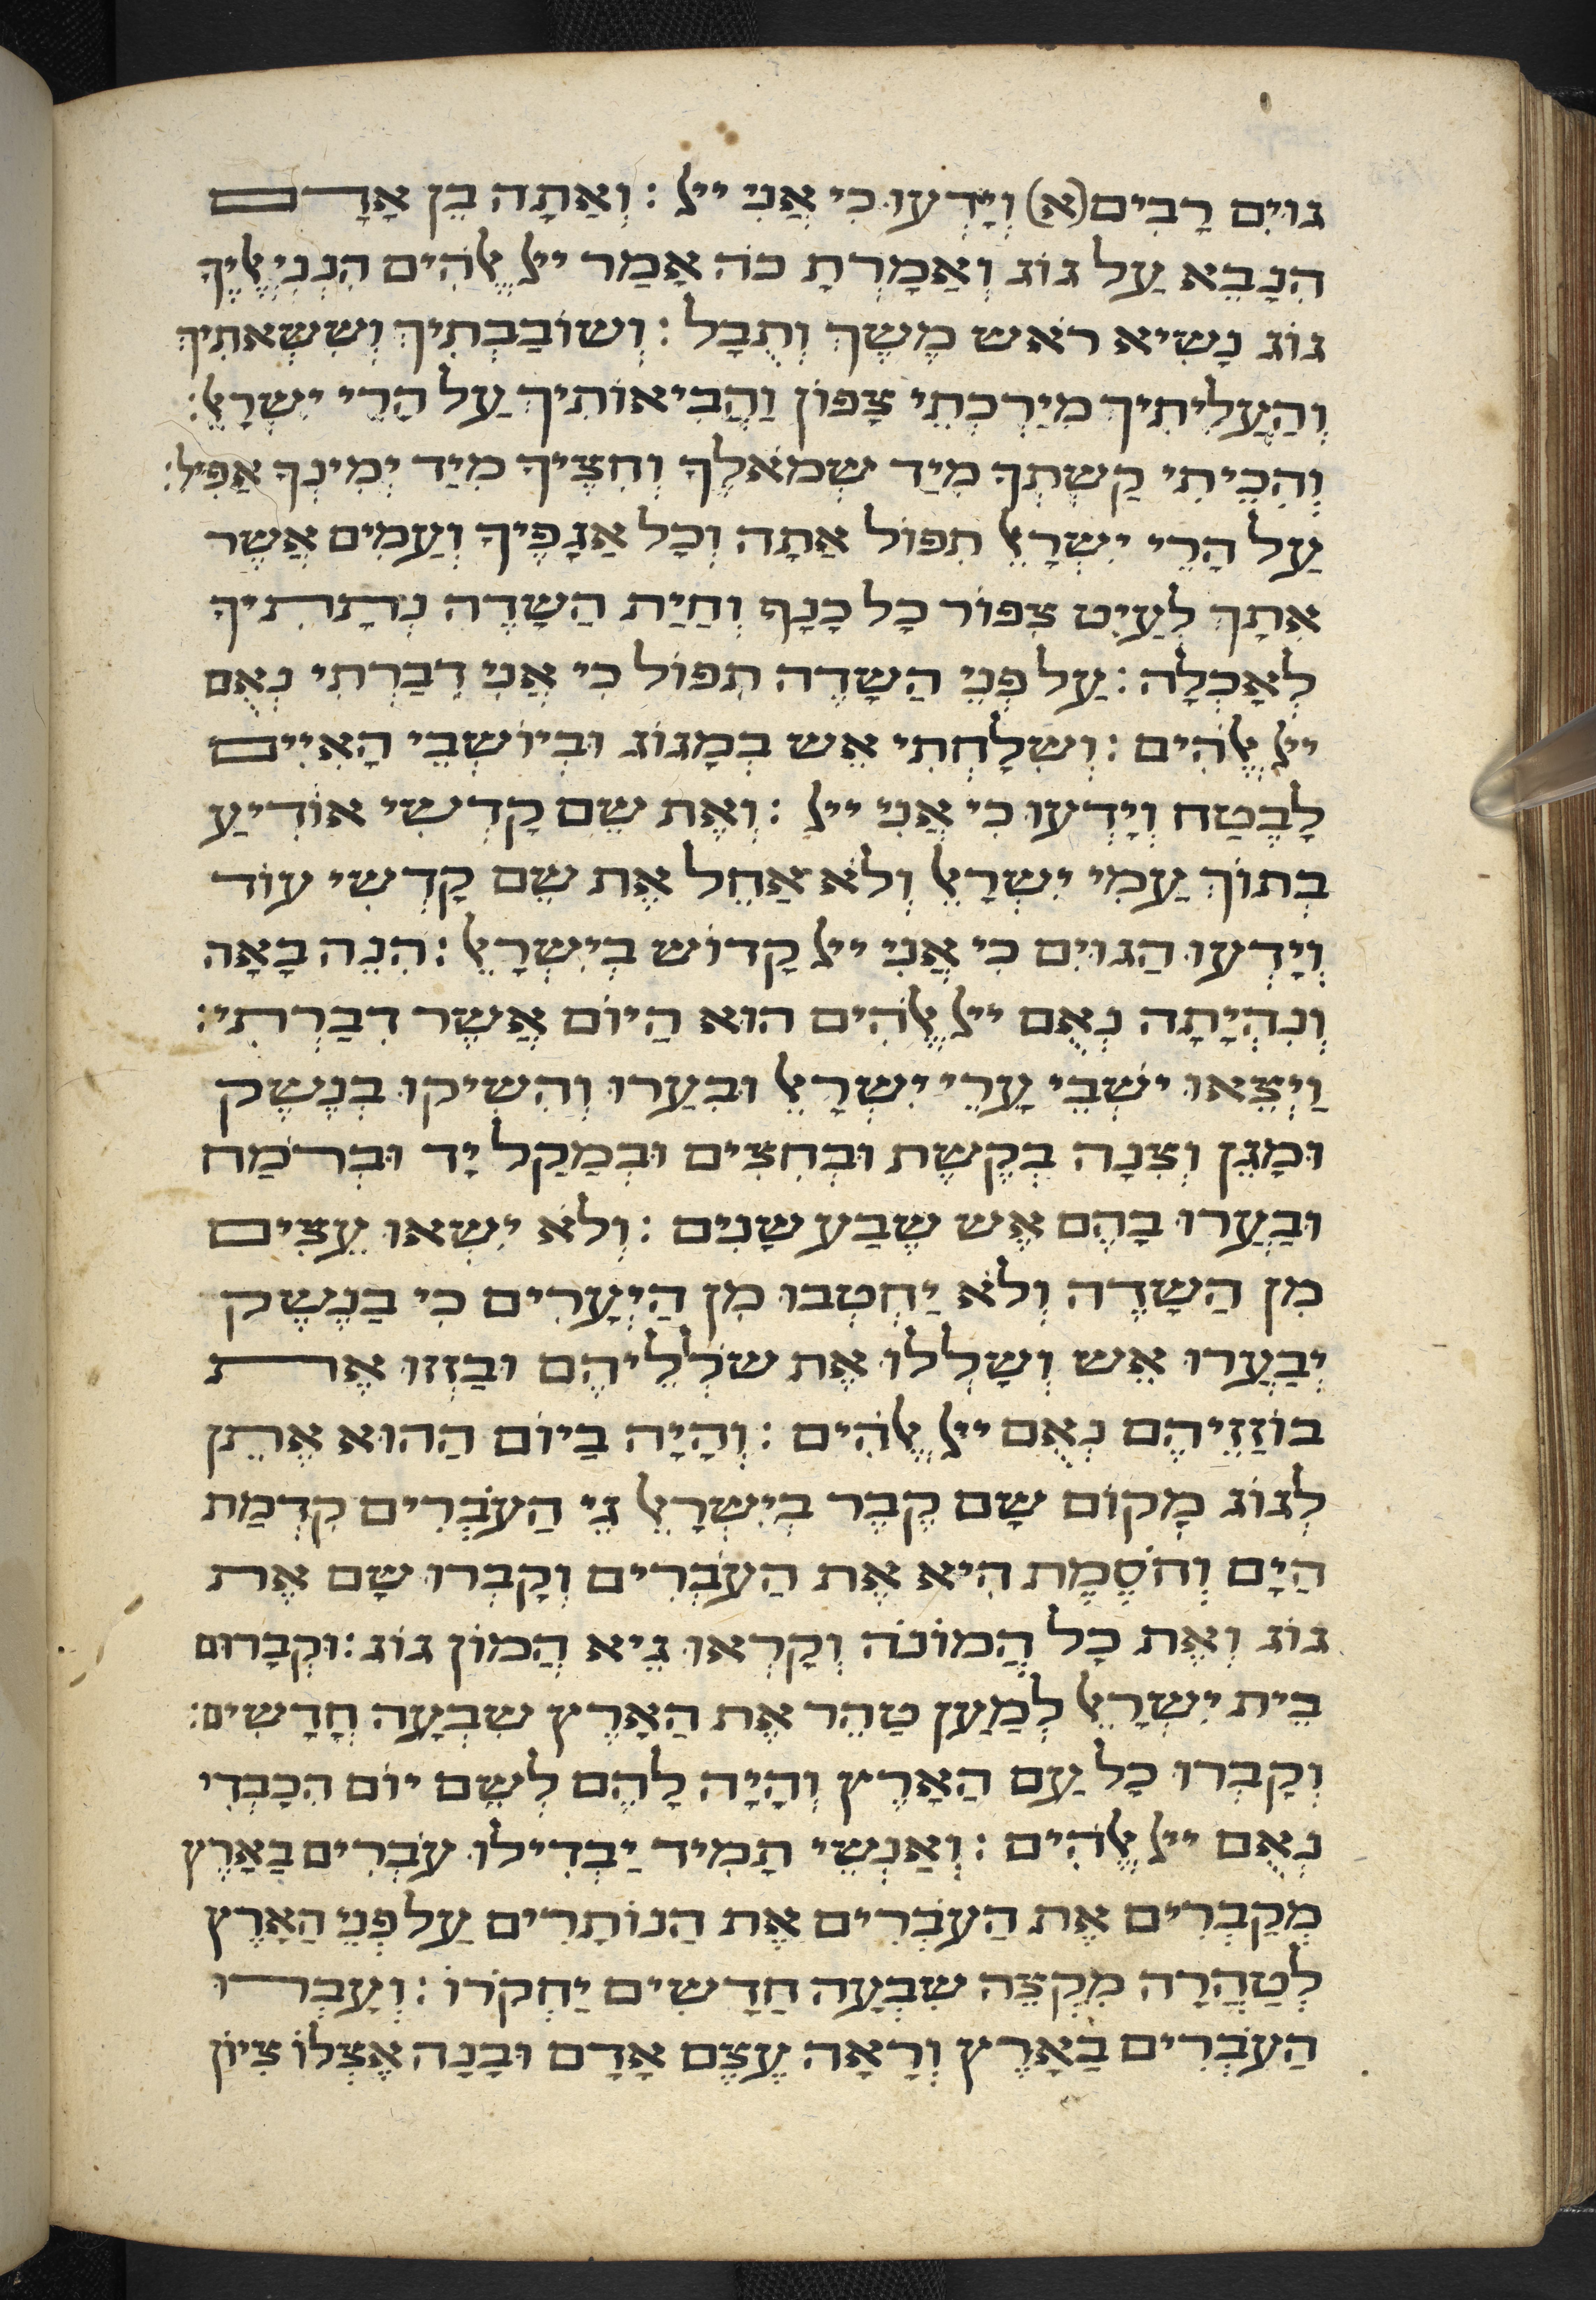 גוֹיִם רַבִים(א) וְיָדְעוּ כִי אֲנִי ייָ : וְאַתָה בֶן אָדָם
הִנָבֵא עַל גוֹג וְאָמַרְתָ כֹה אָמַר ייָ אֱלֹהִים הִנְנִי אֵלֶיךָ
גוֹג נְשִיא רֹאש מֶשֶךְ וְתֻבָל : וְשוֹבַבְתִיךְ וְשִשֵאתִיךְ
וְהַעֲלִיתִיךְ מִיַרְכְתֵי צָפוֹן וַהֲבִיאוֹתִיךְ עַל הָרֵי יִשְרָאֵל :
וְהִכֵיתִי קַשְתְךָ מִיַד שְמֹאלֶךָ וְחִצֶיךָ מִיַד יְמִינְךָ אַפִיל :
עַל הָרֵי יִשְרָאֵל תִפוֹל אַתָה וְכָל אֲגָפֶיךָ וְעַמִים אֲשֶר
אִתָךְ לְעֵיט צִפוֹר כָל כָנָף וְחַיַת הַשָדֶה נְתַתִיךָ
לְאָכְלָה : עַל פְנֵי הַשָדֶה תִפוֹל כִי אֲנִי דִבַרְתִי נְאֻם
ייָ אֱלֹהִים : וְשִלַחְתִי אֵש בְמָגוֹג וּבְיוֹשְבֵי הָאִיִים
לָבֶטַח וְיָדְעוּ כִי אֲנִי ייָ : וְאֶת שֵם קָדְשִי אוֹדִיעַ
בְתוֹךְ עַמִי יִשְרָאֵל וְלֹא אַחֵל אֶת שֵם קָדְשִי עוֹד
וְיָדְעוּ הַגוֹיִם כִי אֲנִי ייָ קָדוֹש בְיִשְרָאֵל : הִנֵה בָאָה
וְנִהְיָתָה נְאֻם ייָ אֱלֹהִים הוּא הַיוֹם אֲשֶר דִבַרְתִי :
וְיָצְאוּ יֹשְבֵי עָרֵי יִשְרָאֵל וּבִעֲרוּ וְהִשִיקוּ בְנֶשֶק
וּמָגֵן וְצִנָה בְקֶשֶת וּבְחִצִים וּבְמַקֵל יָד וּבְרֹמַח
וּבִעֲרוּ בָהֶם אֵש שֶבַע שָנִים : וְלֹא יִשְאוּ עֵצִים
מִן הַשָדֶה וְלֹא יַחְטְבוּ מִן הַיְעָרִים כִי בַנֶשֶק
יְבַעֲרוּ אֵש וְשָלְלוּ אֶת שֹלְלֵיהֶם וּבָזְזוּ אֶת
בוֹזְזֵיהֶם נְאֻם ייָ אֱלֹהִים : וְהָיָה בַיוֹם הַהוּא אֶתֵן
לְגוֹג מְקוֹם שָם קֶבֶר בְיִשְרָאֵל גֵי הָעֹבְרִים קִדְמַת
הַיָם וְחֹסֶמֶת הִיא אֶת הָעֹבְרִים וְקָבְרוּ שָם אֶת
גוֹג וְאֶת כָל הֲמוֹנֹה וְקָרְאוּ גֵיא הֲמוֹן גוֹג : וּקְבָרוּם
בֵית יִשְרָאֵל לְמַעַן טַהֵר אֶת הָאָרֶץ שִבְעָה חֳדָשִים :
וְקָבְרוּ כָל עַם הָאָרֶץ וְהָיָה לָהֶם לְשֵם יוֹם הִכָבְדִי
נְאֻם ייָ אֱלֹהִים : וְאַנְשֵי תָמִיד יַבְדִילוּ עֹבְרִים בָאָרֶץ
מְקַבְרִים אֶת הָעֹבְרִים אֶת הַנוֹתָרִים עַל פְנֵי הָאָרֶץ
לְטַהֲרָה מִקְצֵה שִבְעָה חֳדָשִים יַחְקֹרוּ : וְעָבְרוּ
הָעֹבְרִים בָאָרֶץ וְרָאָה עֶצֶם אָדָם וּבָנָה אֶצְלוֹ צִיוּן